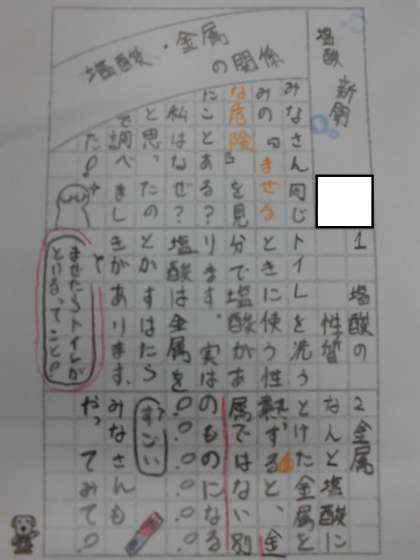 塩酸新聞
塩酸・金属
の関係
みなさん同じ
みの「まぜる
な危険」を見
たことある?
私はなぜ?
と思ったの
で調べまし
た!
1 塩酸の
性質
トイレを洗う
ときに使う性
分で塩酸があ
ります。実は
塩酸は金属を
とかすはたら
きがあります。
まぜたらトイレが
といるってこと!
2 金属
なんと塩酸に
とけた金属を
熱すると、金
属ではない別
のものになる
!!!!
すごい
みなさんも
やってみても!